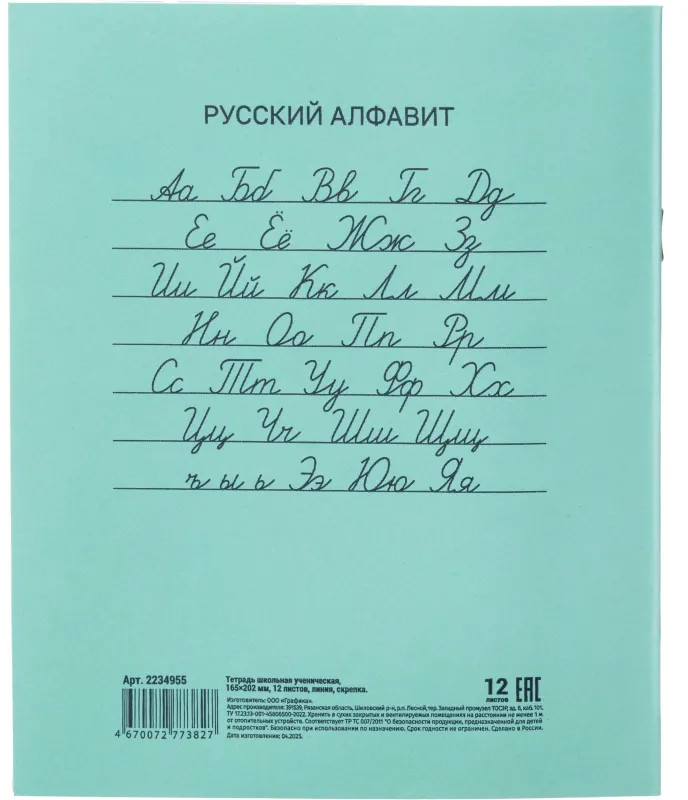 РУССКИЙ АЛФАВИТ
Аа Бб Вв Гг Дд
Ее Ёё Жж Зз
Ии Йй Кк Лл Мм
Нн Оо Пп Рр
Сс Тт Уу Фф Хх
Цц Чч Шш Щщ
ъ ы ь Ээ Юю Яя
Арт. 2234955
4 670072 773827
Тетрадь школьная ученическая,
165×202 мм, 12 листов, линия, скрепка.
Изготовитель: ООО «Графика».
Адрес производителя: 391539, Рязанская область, Шиловский р-н, р.п. Лесной, тер. Западный промузел ТОСЭР, зд. 6, каб. 101,
ТУ 17.23.13-001-45806500-2022. Хранить в сухих закрытых и вентилируемых помещениях на расстоянии не менее 1 м
от отопительных устройств. Соответствует ТР ТС 007/2011 "О безопасности продукции, предназначенной для детей
и подростков". Безопасно при использовании по назначению. Срок годности не ограничен. Сделано в России.
Дата изготовления: 04.2025.
12
листов
ЕАС